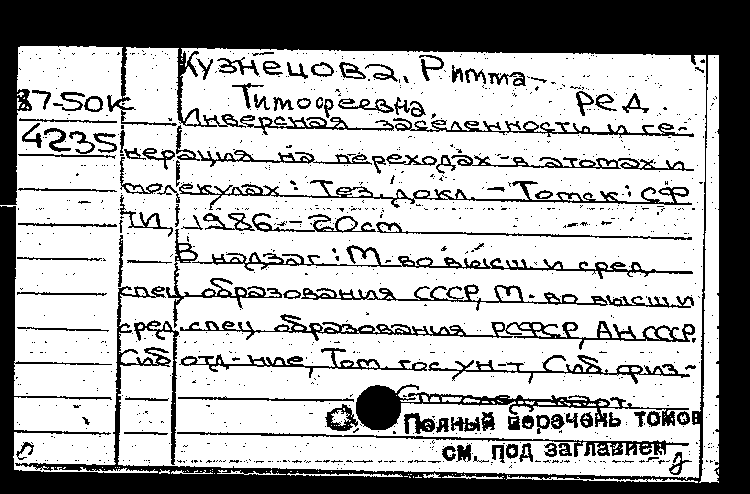 Кузнецова, Римма
87-50к Тимофеевна, ред.
4235 Инверсная заселенности и ге-
нерация на переходах в атомах и
молекулах: Тез. докл. - Томск: СФ
ТИ, 1986. - 20 см
В надзаг: М-во высш. и сред.
спец. образования СССР, М-во высш. и
сред. спец. образования РСФСР, АН СССР.
Сиб отд-ние, Том. гос ун-т, Сиб. физ.-
См. след. карт.
Полный перечень томов
см. под заглавием